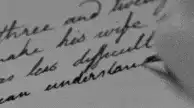 three and twenty
make his wife
so less difficult
can understand